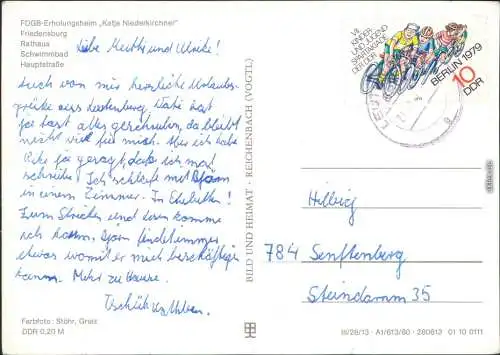 FDGB-Erholungsheim „Katja Niederkirchner"
Friedensburg
Rathaus
Schwimmbad
Hauptstraße
Liebe und Ulrike!
Auch von mir herzliche Urlaubs-
grüße aus Leutenberg. Kati hat
ja fast alles geschrieben, da bleibt
nicht viel für mich. Aber ich habe
Rike ja gesagt, daß ich mal
schreibe. Ich schlafe mit Björn
in einem Zimmer. In Ehebetten!
Zum Stricken und Lesen komme
ich kaum. Björn findet immer
etwas womit er mich beschäftigen
kann. Mehr zu Hause.
Tschüß
Farbfoto: Stöhr, Greiz
DDR 0,20 M
BILD UND HEIMAT · REICHENBACH (VOGTL)
VII.
KINDER
UND JUGEND
SPARTAKIADE
DER DDR
BERLIN 1979
10
DDR
Hilbig
784 Senftenberg
Steindamm 35
III/28/13 · A1/613/80 · 280613 01 10 0111